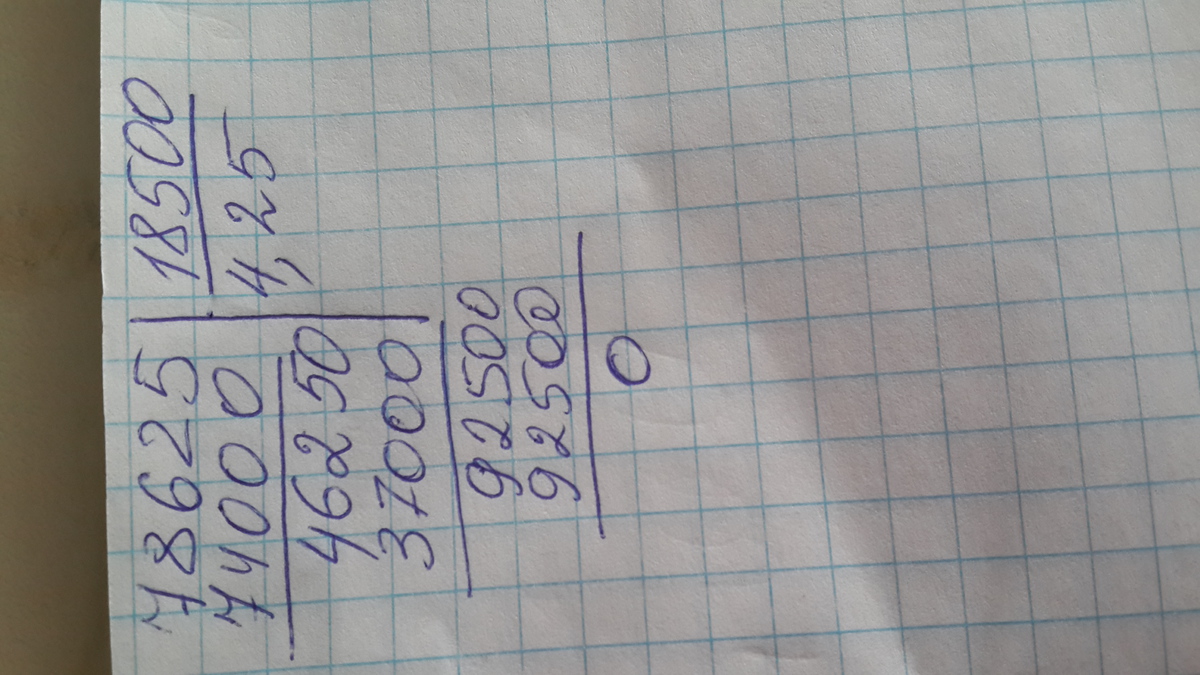 78625 18500
74000 4,25
46250
37000
92500
92500
0